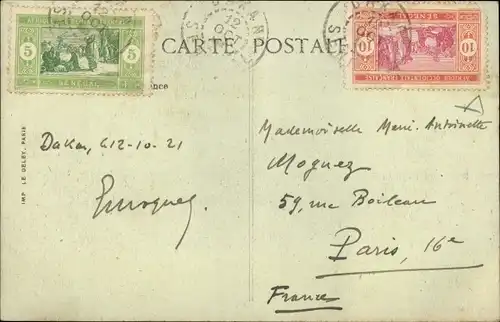 CARTE POSTALE
5 5
SÉNÉGAL
10 10
SÉNÉGAL
AFRIQUE OCCIDENTALE FRANÇAISE
DAKAR
ance
IMP. LE DELEY, PARIS
Dakar, le 12-10-21
Mademoiselle Marie-Antoinette
Moguez
59, rue Boileau
Paris, 16e
France